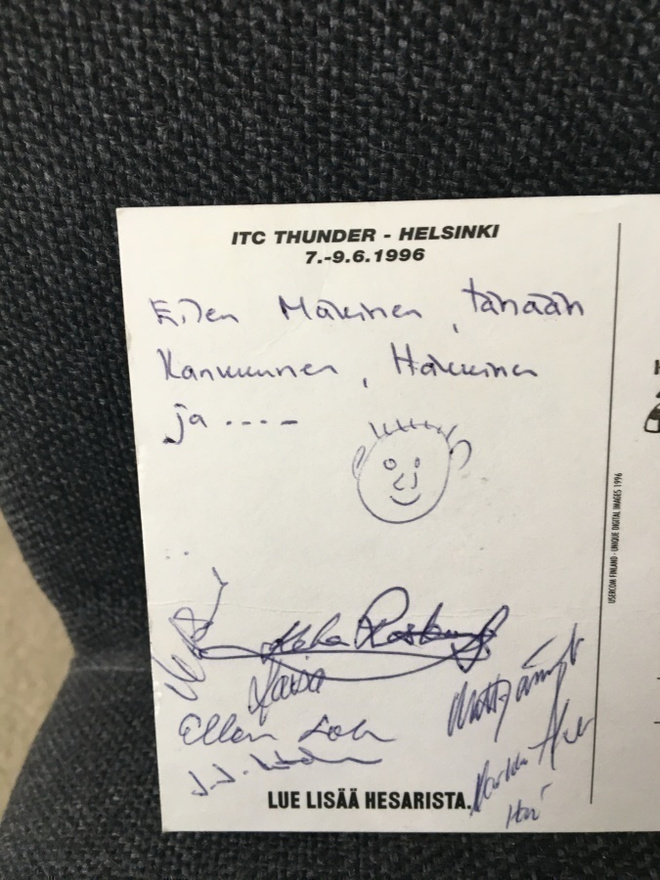 ITC THUNDER - HELSINKI
7.-9.6.1996
Eilen Mäkinen, tänään
Kankkunen, Häkkinen
ja ----
USERCOM FINLAND - UNIQUE DIGITAL IMAGES 1996
Keke Rosberg
Kaisa
Ellen Lohr
J.J. Lehto
LUE LISÄÄ HESARISTA.